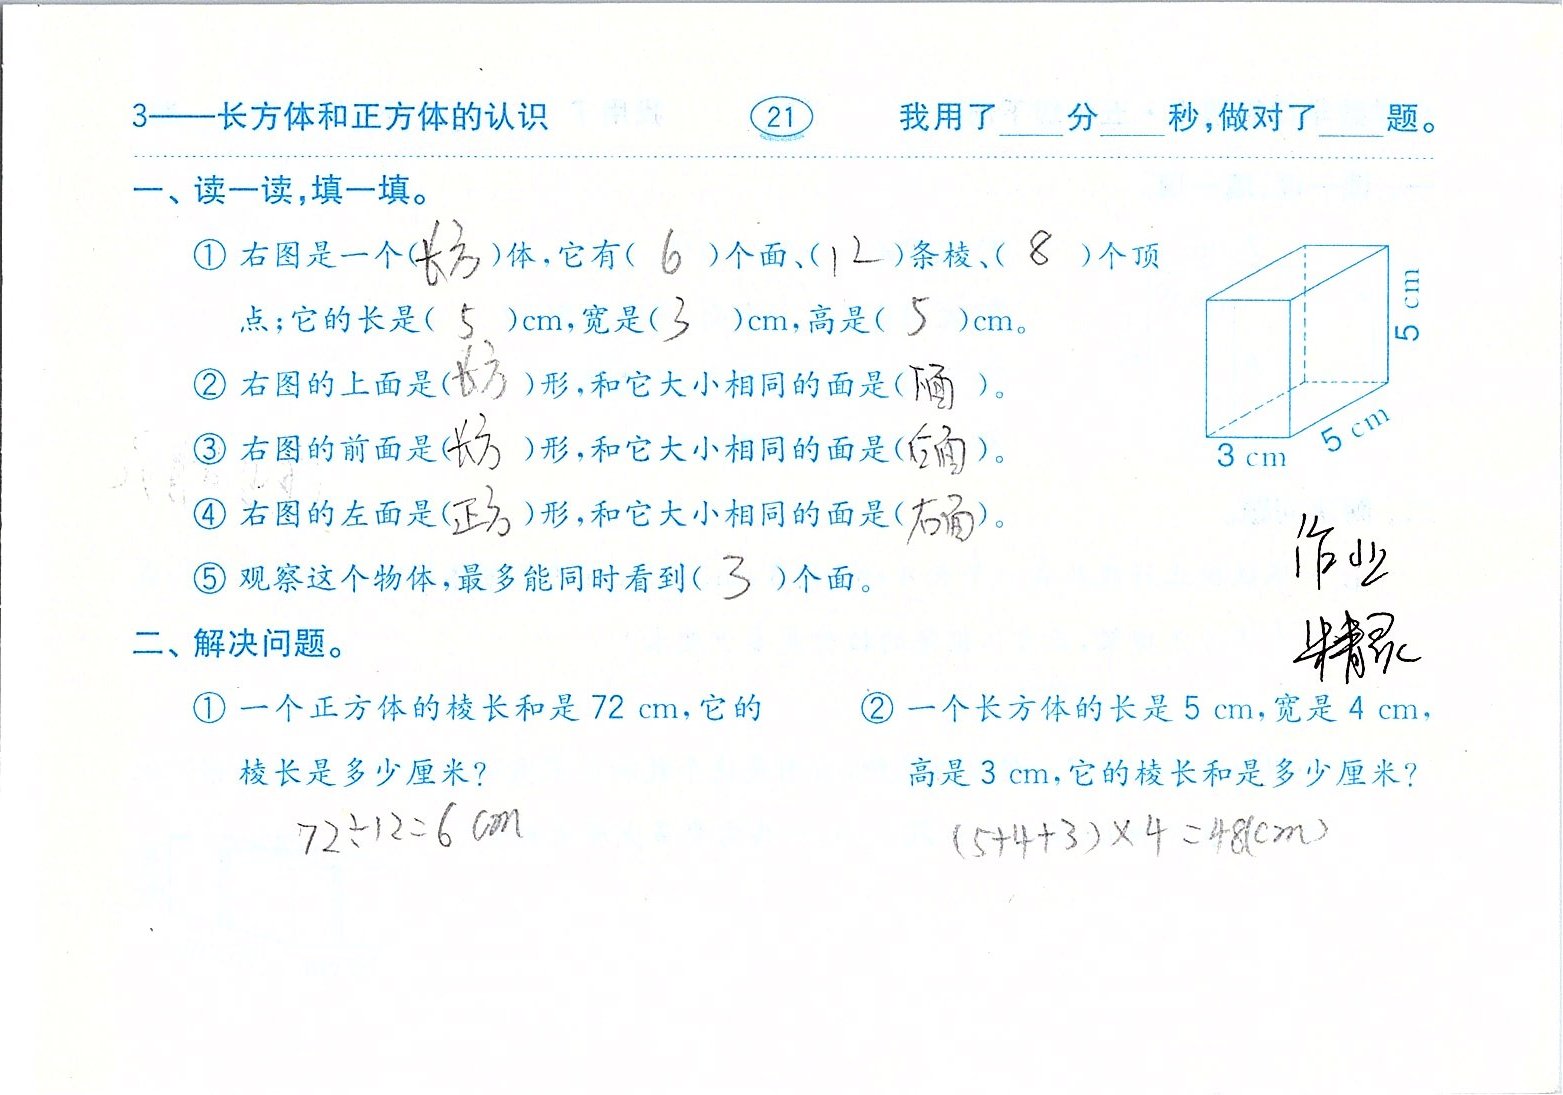 3——长方体和正方体的认识 21 我用了____分____秒,做对了____题。
一、读一读,填一填。
① 右图是一个(长方)体,它有( 6 )个面、(12)条棱、( 8 )个顶
点;它的长是( 5 )cm,宽是( 3 )cm,高是( 5 )cm。
② 右图的上面是(长方)形,和它大小相同的面是(下面)。
③ 右图的前面是(长方)形,和它大小相同的面是(后面)。
④ 右图的左面是(正方)形,和它大小相同的面是(右面)。
⑤ 观察这个物体,最多能同时看到( 3 )个面。
5 cm
5 cm
3 cm
作业
精灵
二、解决问题。
① 一个正方体的棱长和是 72 cm,它的
棱长是多少厘米?
72÷12=6 cm
② 一个长方体的长是 5 cm,宽是 4 cm,
高是 3 cm,它的棱长和是多少厘米?
(5+4+3)×4=48(cm)